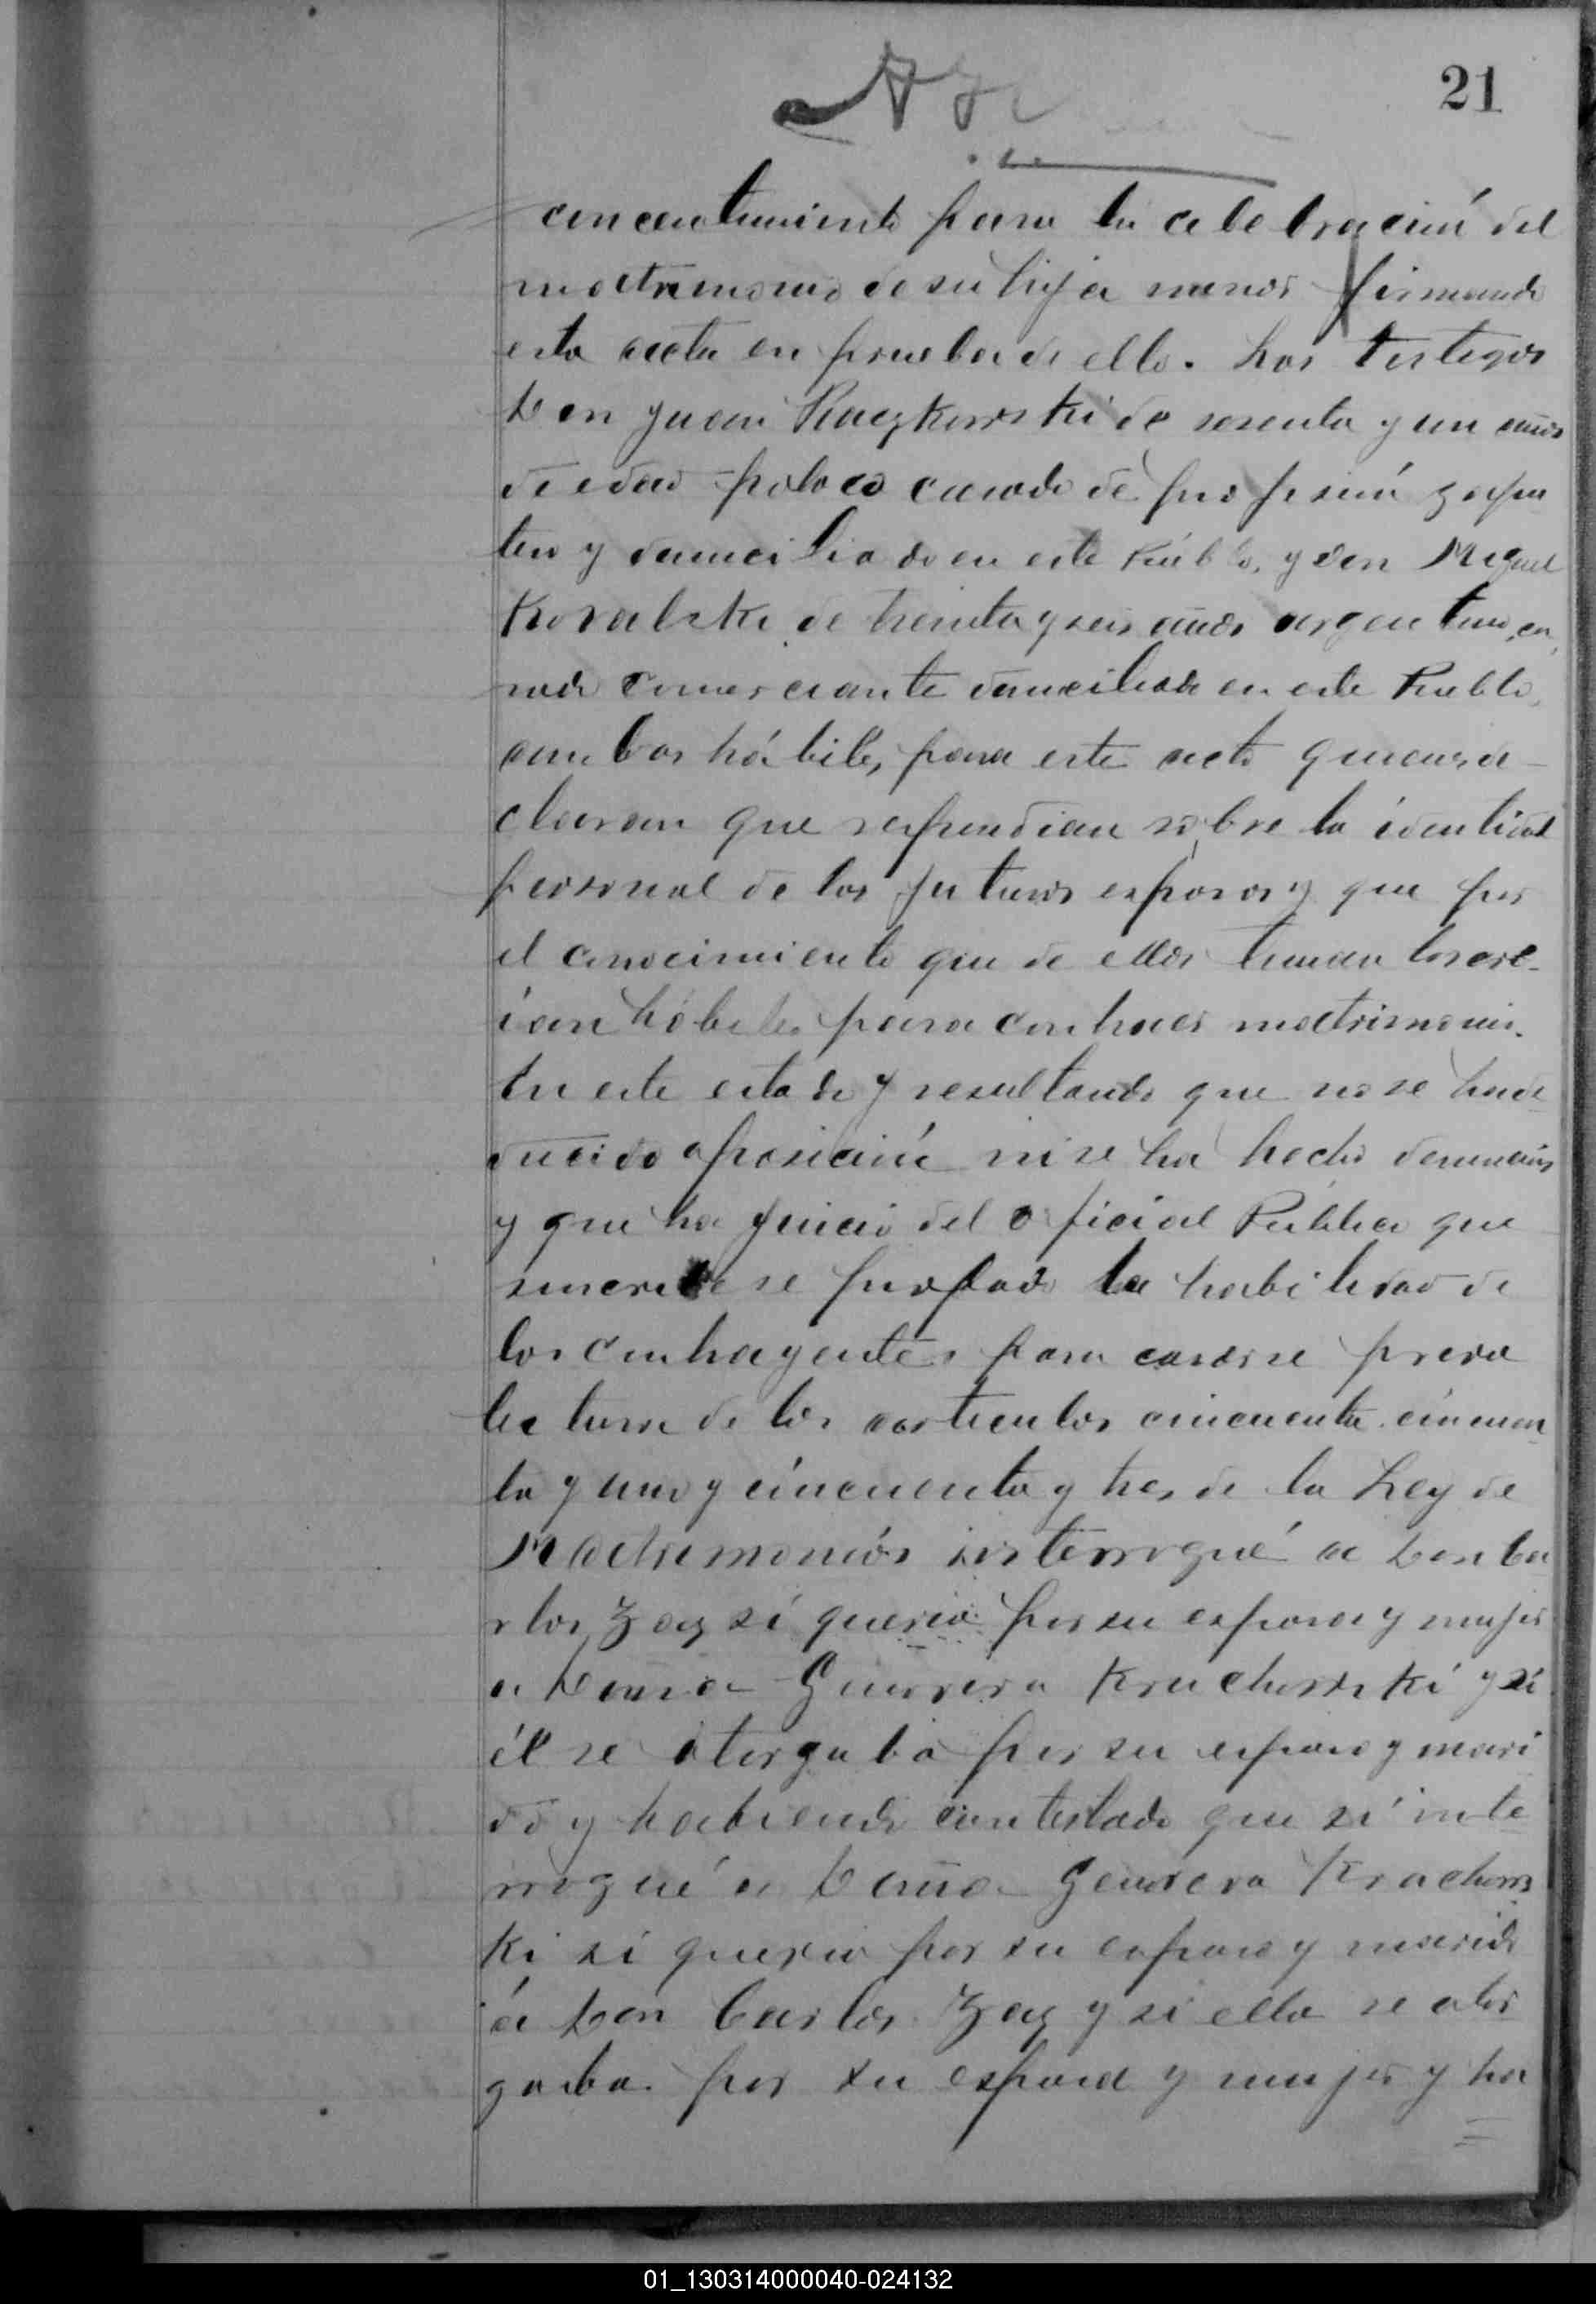 21
concentimiento para la celebración del
matrimonio de su hija menor firmando
esta acta en prueba de ello. Los testigos
Don Juan Raczkowski de sesenta y un años
de edad polaco casado de profesión zapa
tero y domiciliado en este Pueblo, y don Miguel
Kovalski de treinta y seis años argentino, ca
sado comerciante domiciliado en este Pueblo,
ambos hábiles para este acto quienes de-
claran que respondian sobre la identidad
personal de los futuros esposos y que por
el conocimiento que de ellos tenian los cre-
ían hábiles para contraer matrimonio.
En este estado y resultando que no se ha de-
ducido oposición ni se ha hecho denuncias
y que ha juicio del oficial Público que
suscribe se probado la habilidad de
los contrayentes para casarse previa
lectura de los articulos cincuenta cincuen
ta y uno y cincuenta y tres de la Ley de
Matrimonios interrogué a Don Ca
rlos Zaz sí queria por su esposa y mujer
a Doña Genoveva Kruchowski y sí
él se otorgaba por su esposo y mari
do y habiendo contestado que sí inte
rrogué a Doña Genoveva Kruchows
ki sí queria por su esposo y marido
á Don Carlos Zaz y si ella se otor
gaba por su esposa y mujer y ha
01_130314000040-024132